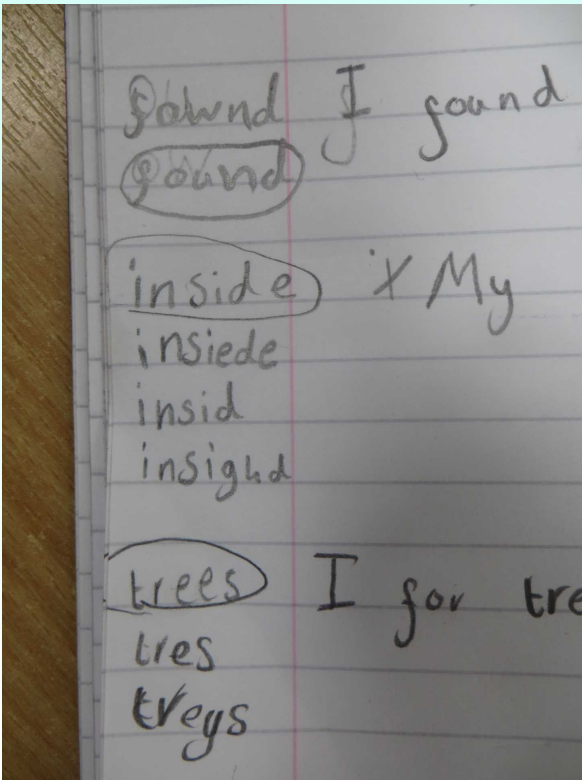 fawnd I found
found
inside x My
insiede
insid
insighd
trees I for tre
tres
treys